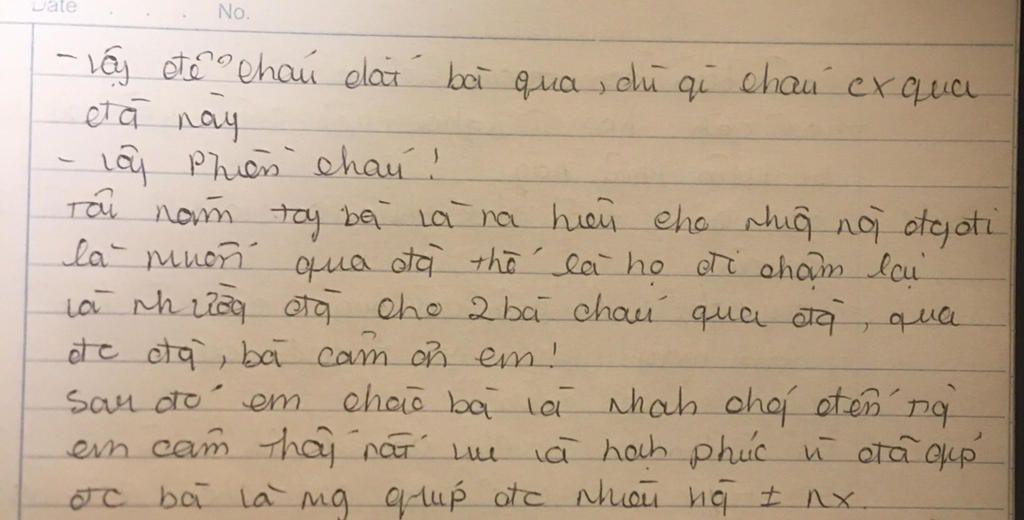 Date . . . No.
- Vậy để cháu dắt bà qua, dù gì cháu cx qua
đg này
- Vậy phiền cháu!
Tôi nắm tay bà và ra hiệu cho nhg ng đg đi
là muốn qua đg thế là họ đi chậm lại
và nhường đg cho 2 bà cháu qua đg, qua
đc đg, bà cảm ơn em!
Sau đó em chào bà và nhah chg đến
em cảm thấy rất vui và hạh phúc vì đã giúp
đc bà và mg giúp đc nhiều ng ± nx.